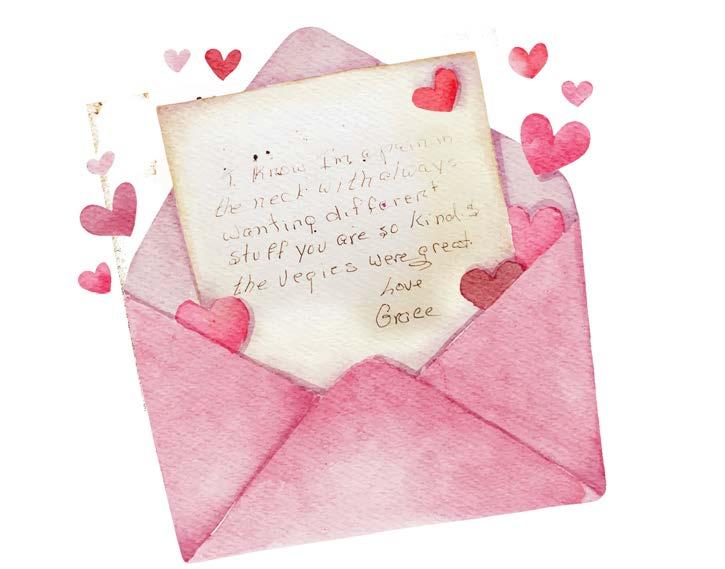 I Know I'm a pain in
the neck with always
wanting different
stuff you are so kind &
the Vegies were great
Love
Grace